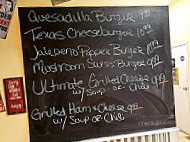 Quesadilla Burger 9.99
Texas Cheeseburger 10.99
Jalapeno Popper Burger
Mushroom Swiss Burger 9.99
Ultimate Grilled Cheese
w/ Soup or Chili
Grilled Ham & Cheese 9.00
w/ Soup or Chili